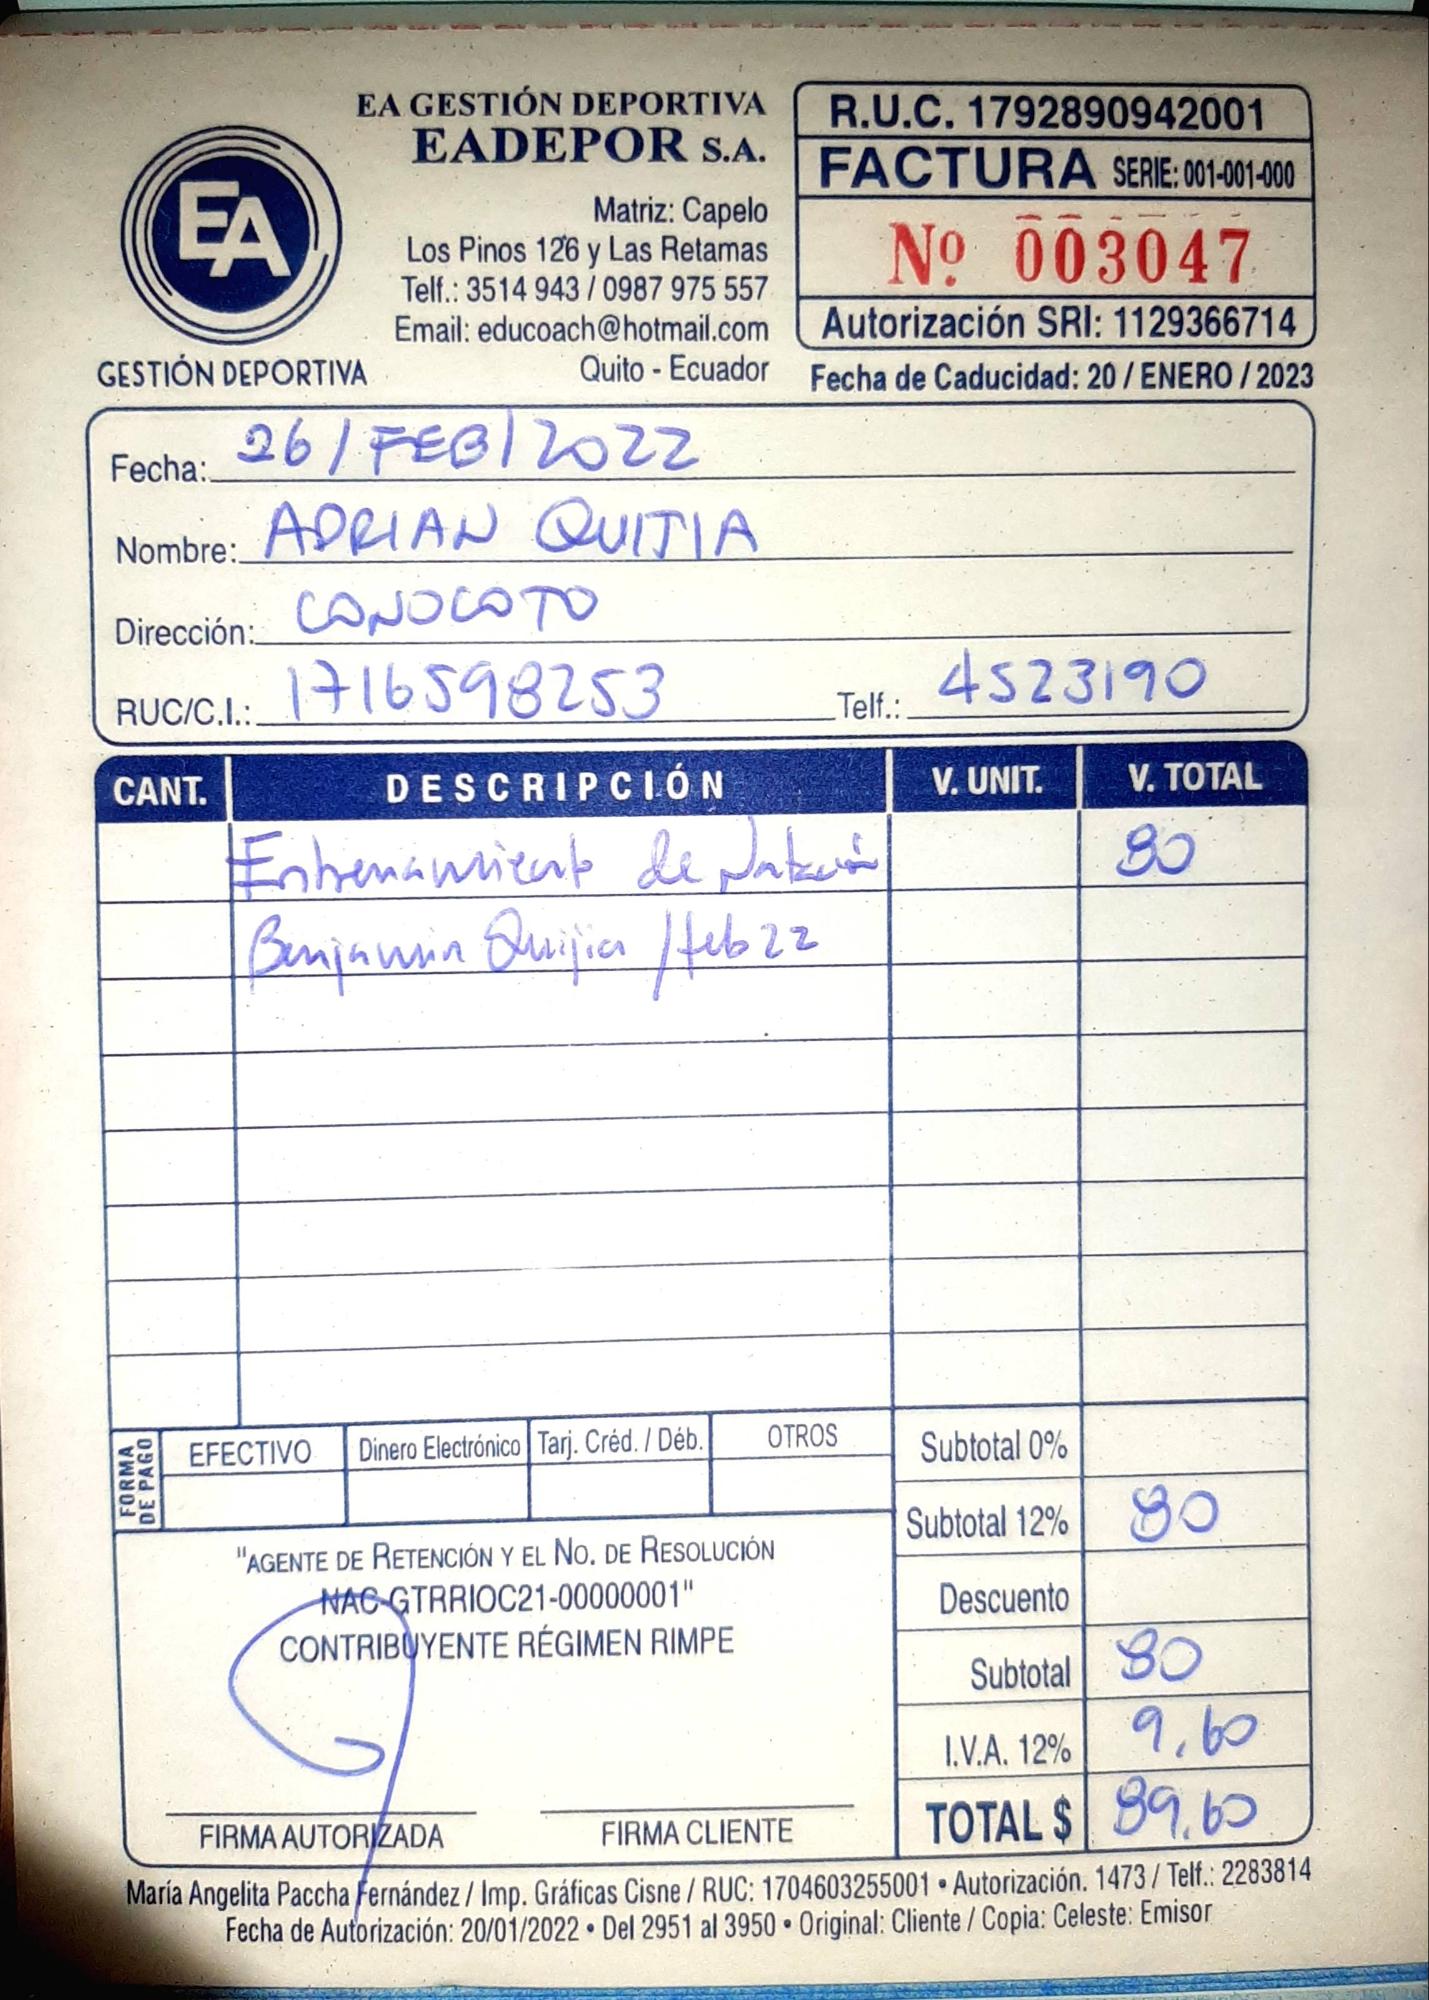 EA GESTIÓN DEPORTIVA
EADEPOR S.A.
Matriz: Capelo
Los Pinos 126 y Las Retamas
Telf.: 3514 943 / 0987 975 557
Email: educoach@hotmail.com
Quito - Ecuador
EA
GESTIÓN DEPORTIVA
R.U.C. 1792890942001
FACTURA SERIE: 001-001-000
Nº 003047
Autorización SRI: 1129366714
Fecha de Caducidad: 20 / ENERO / 2023
Fecha: 26/FEB/2022
Nombre: ADRIAN QUIJIA
Dirección: CONOCOTO
RUC/C.I.: 1716598253 Telf.: 4523190
CANT. DESCRIPCIÓN V. UNIT. V. TOTAL
Entrenamiento de Natación 80
Benjamin Quijia /feb 22
FORMA DE PAGO
EFECTIVO Dinero Electrónico Tarj. Créd. / Déb. OTROS
Subtotal 0%
Subtotal 12% 80
Descuento
Subtotal 80
I.V.A. 12% 9,60
TOTAL $ 89,60
"AGENTE DE RETENCIÓN Y EL NO. DE RESOLUCIÓN
NAC-GTRRIOC21-00000001"
CONTRIBUYENTE RÉGIMEN RIMPE
FIRMA AUTORIZADA FIRMA CLIENTE
María Angelita Paccha Fernández / Imp. Gráficas Cisne / RUC: 1704603255001 • Autorización. 1473 / Telf.: 2283814
Fecha de Autorización: 20/01/2022 • Del 2951 al 3950 • Original: Cliente / Copia: Celeste: Emisor